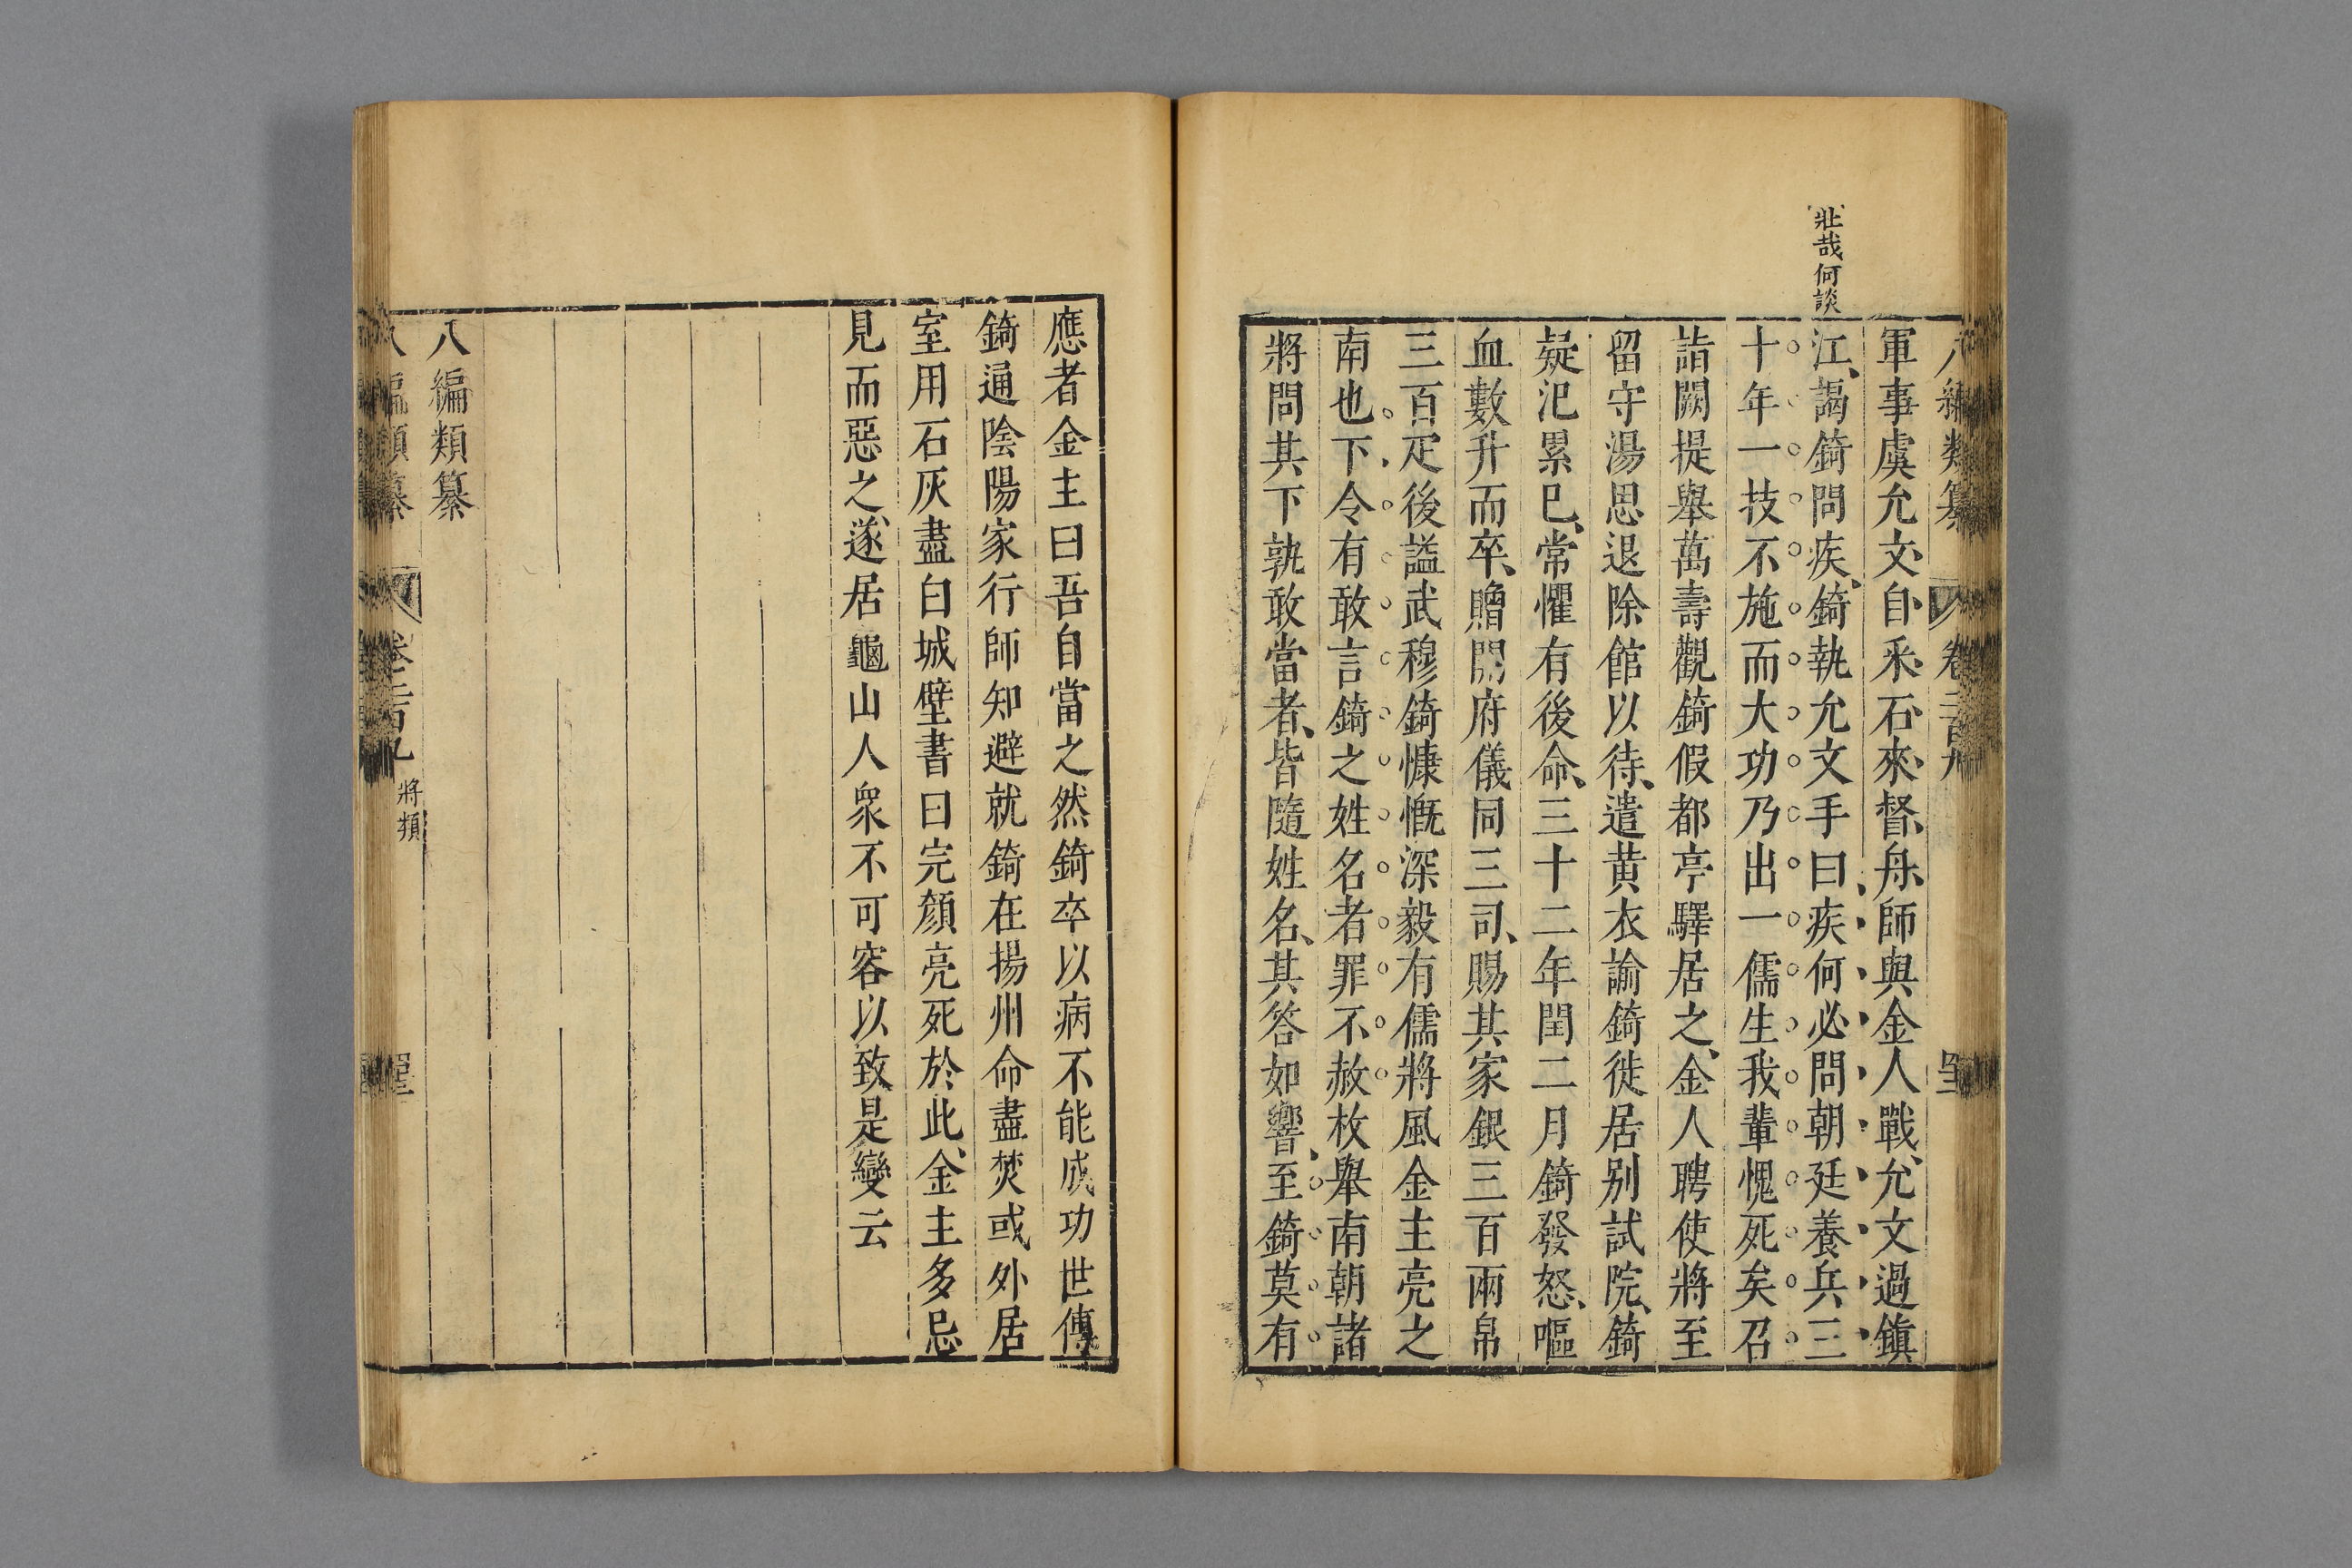 八編類纂 卷二百九
壯哉何談
軍事虞允文自采石來督舟師與金人戰允文過鎮
江謁錡問疾錡執允文手曰疾何必問朝廷養兵三
十年一技不施而大功乃出一儒生我輩愧死矣召
詣闕提舉萬壽觀錡假都亭驛居之金人聘使將至
留守湯思退除館以待遣黄衣諭錡徙居别試院錡
疑汜累已常懼有後命三十二年閏二月錡發怒嘔
血數升而卒贈開府儀同三司賜其家銀三百兩帛
三百疋後謚武穆錡慷慨深毅有儒將風金主亮之
南也下令有敢言錡之姓名者罪不赦枚舉南朝諸
將問其下孰敢當者皆隨姓名其答如響至錡莫有
應者金主曰吾自當之然錡卒以病不能成功世傳
錡通陰陽家行師知避就錡在揚州命盡焚或外居
室用石灰盡白城壁書曰完顔亮死於此金主多忌
見而惡之遂居龜山人衆不可容以致是變云
八編類纂
八編類纂 卷二百九 將類